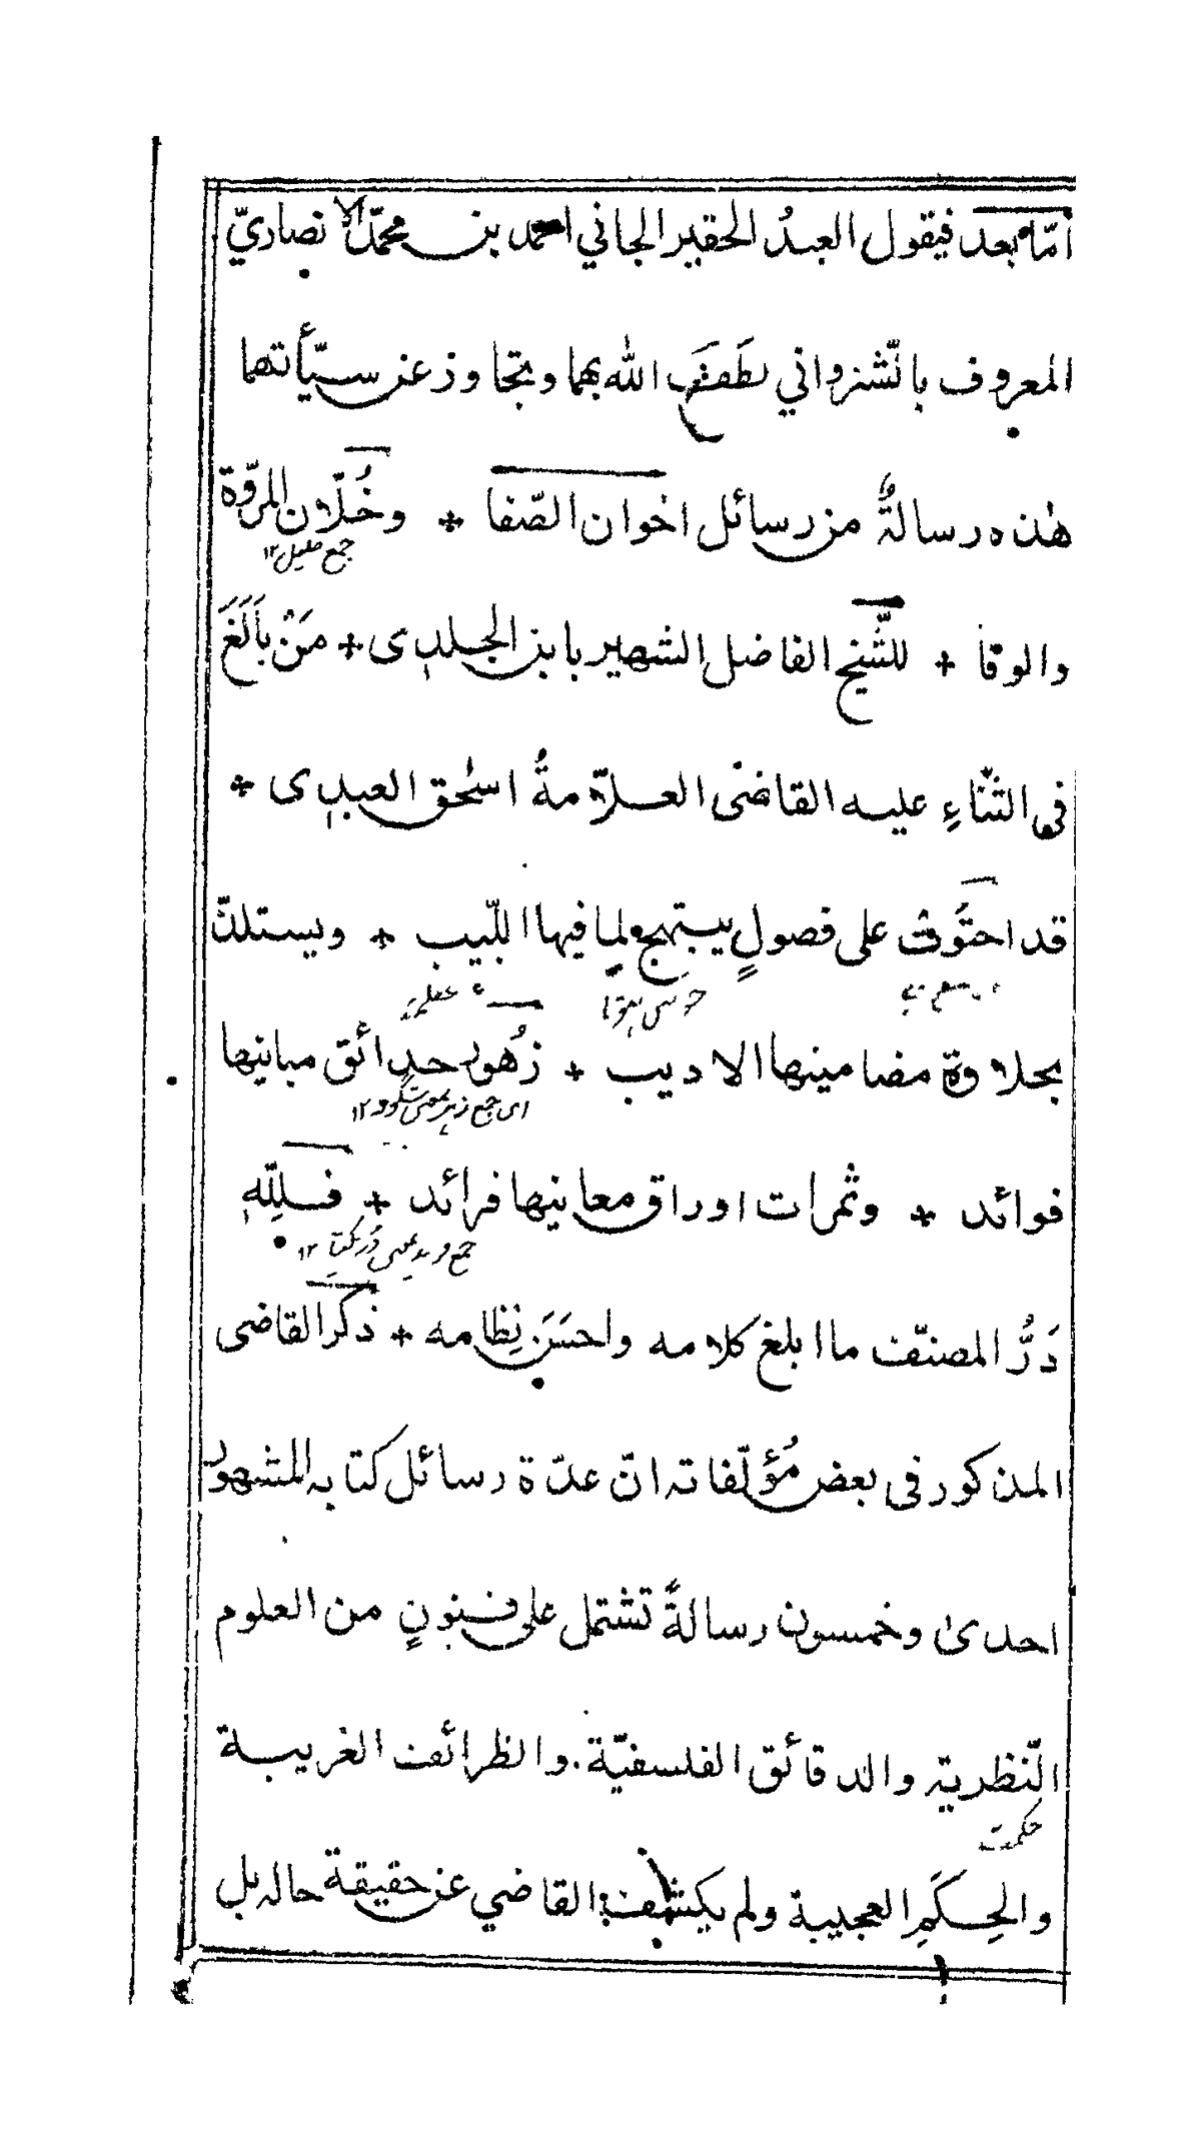 أمّا بعد فيقول العبدُ الحقير الجاني احمد بن محمّد الانصاريّ
المعروف بالشّرواني لطَفَ الله بهما وتجاوز عن سيّأتهما
هٰذه رسالةٌ من رسائل اخوان الصّفا + وخُلّان المروّة
جمع خليل ١٢
والوفا + للشّيخ الفاضل الشهير بابن الجلدى + مَنْ بَالَغَ
فى الثّناءِ عليه القاضى العلّامةُ اسٰحق العبدى +
قد احتَوت على فصولٍ يبتهج لِما فيها اللّبيب + ويستلذّ
بحلاوة مضامينها الاديب + زُهور حدائق مبانيها
اى جمع زهر بمعنى شگوفه ١٢
فوائد + وثمرات اوراق معانيها فرائد + فللّٰه
دَرُّ المصنّف ما ابلغ كلامه واحسَنَ نِظامه + ذكر القاضى
المذكور فى بعض مُؤلّفاته انّ عدّة رسائل كتابه المشهور
احدىٰ وخمسون رسالةً تشتمل على فنونٍ من العلوم
النّظرية والدقائق الفلسفيّة. والظرائف الغريبة
حكمت
والحِكَمِ العجيبة ولم يكشف القاضي عن حقيقة حاله بل